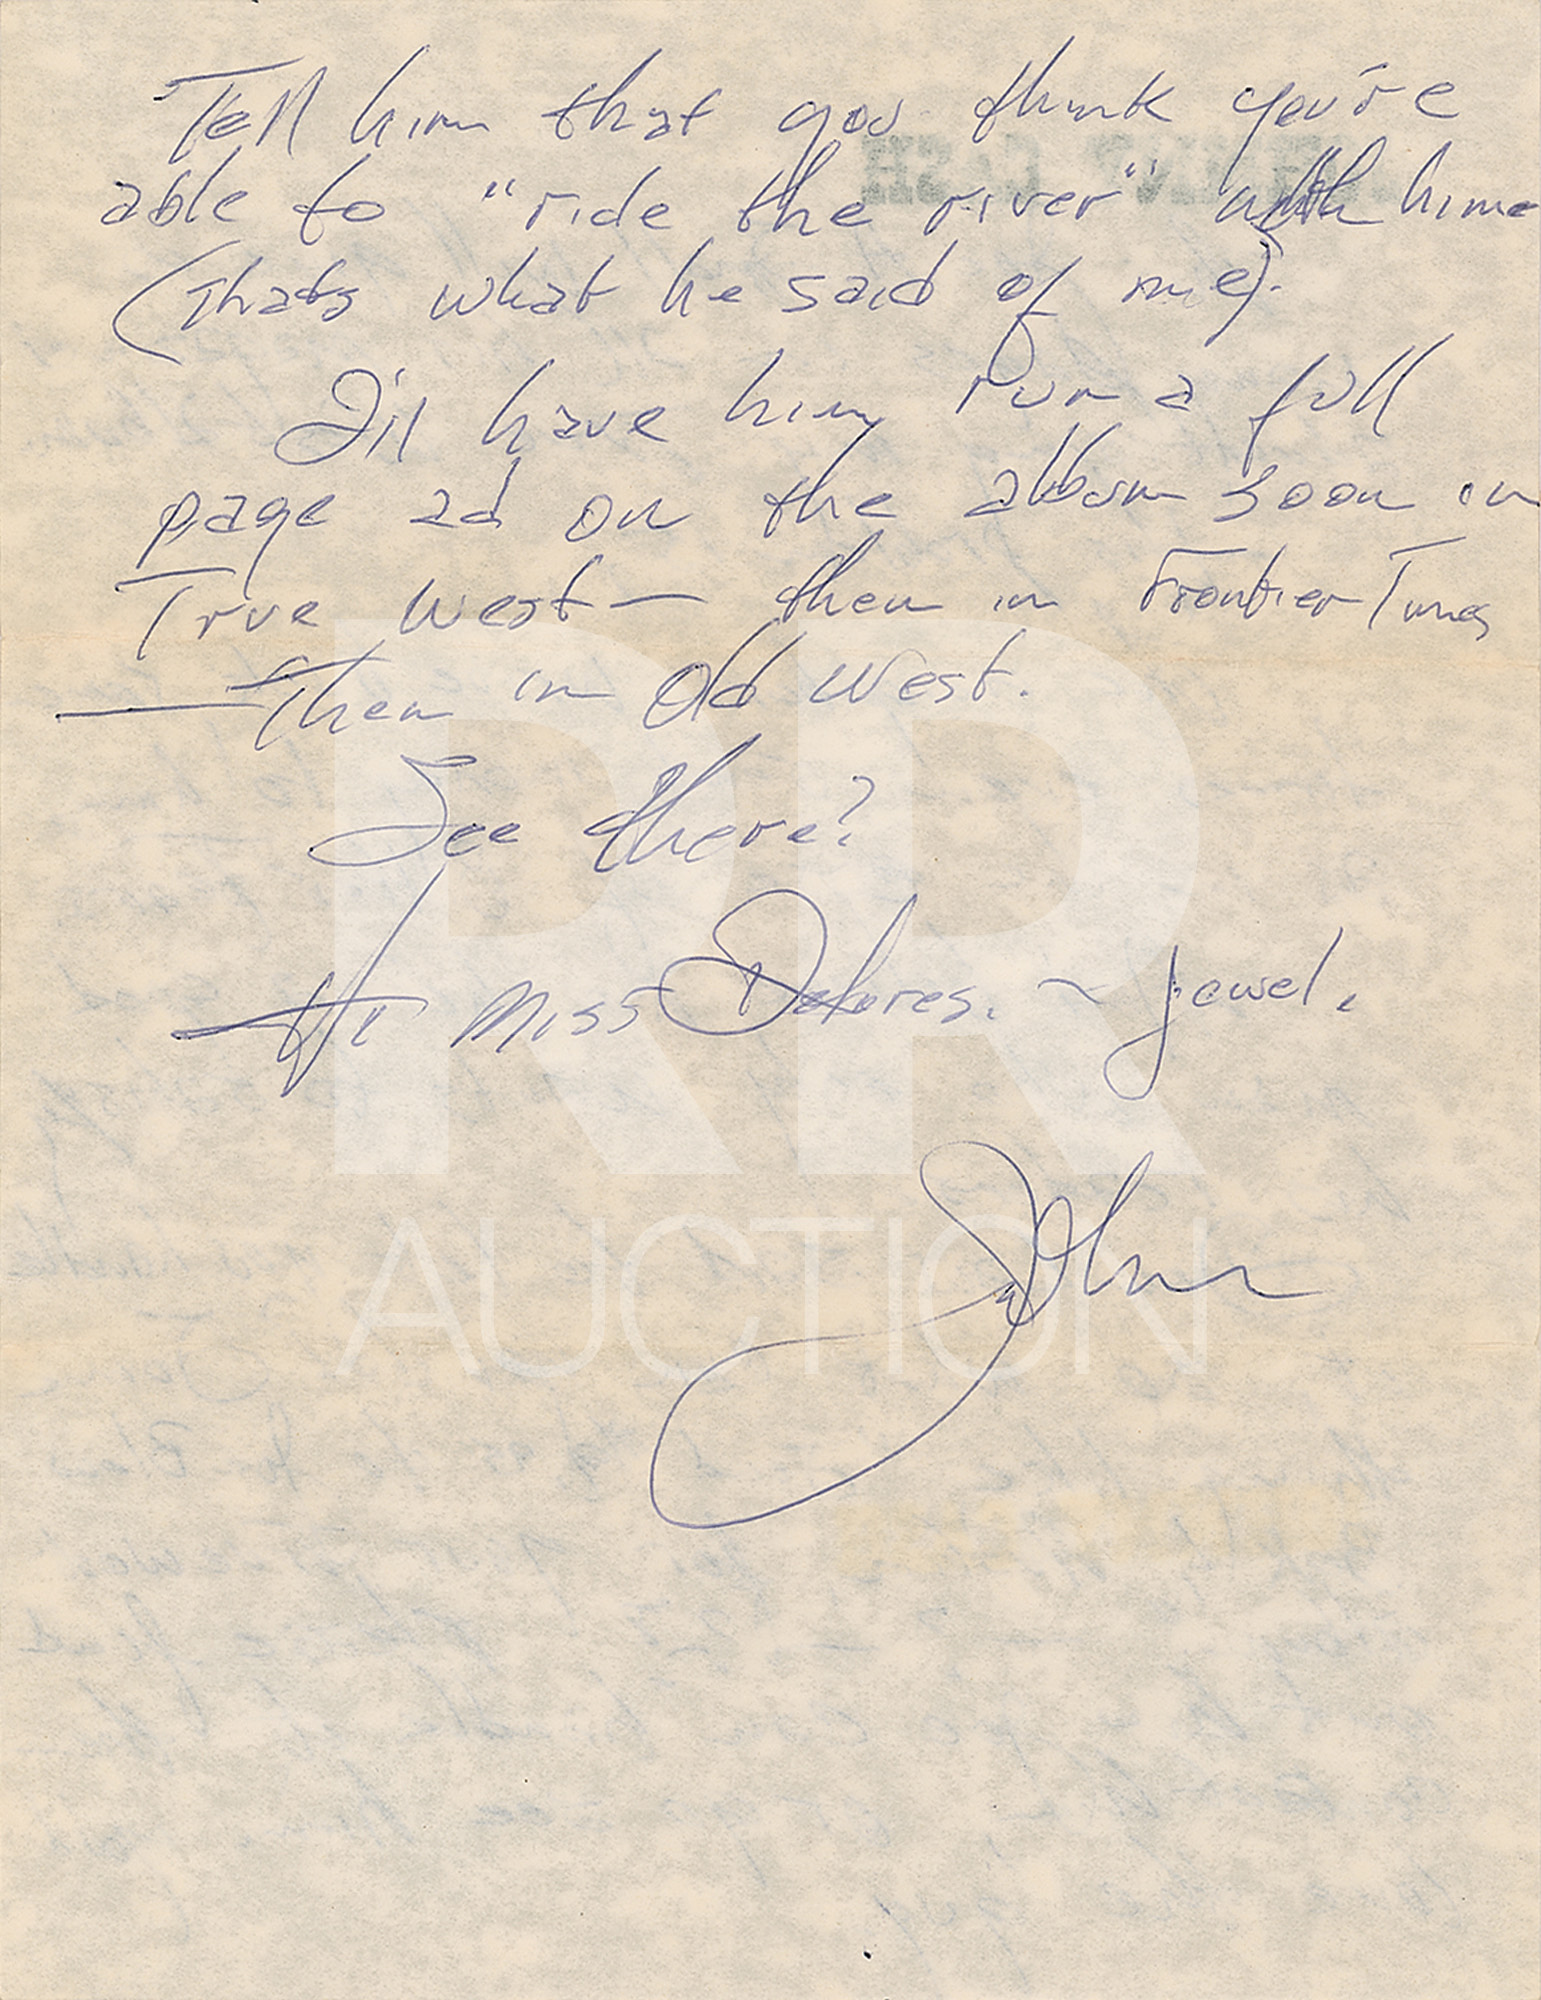 Tell him that you think you're
able to "ride the river" with him
(Thats what he said of me).
I'll have him run a full
page ad on the album soon in
True West — then in Frontier Times
— Then in Old West.
See there?
Hi Miss Delores. ~ Jewel.
John
RR
AUCTION